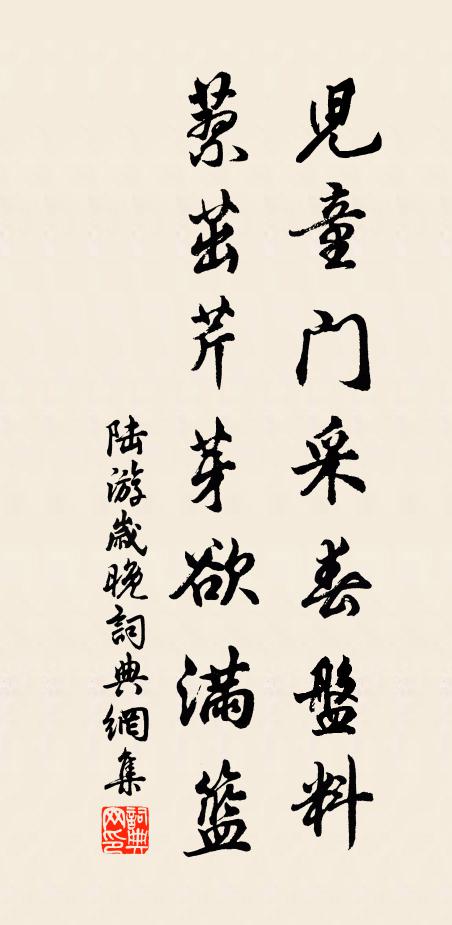 兒童門采春盤料
蓼茁芹芽欲滿籃
陸游歲晚詞典網集
詞典网印